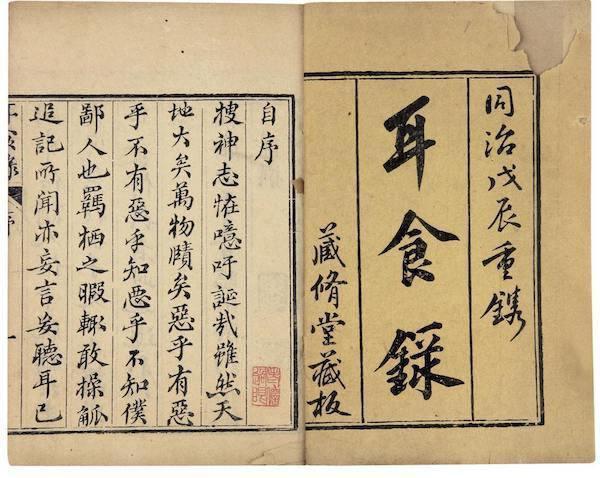 同治戊辰重鐫
耳食錄
藏脩堂藏板
自序
搜神志怪噫吁誕哉雖然天
地大矣萬物賾矣惡乎有惡
乎不有惡乎知惡乎不知僕
鄙人也羈栖之暇輙敢操觚
追記所聞亦妄言妄聽耳已
耳食錄
序
一